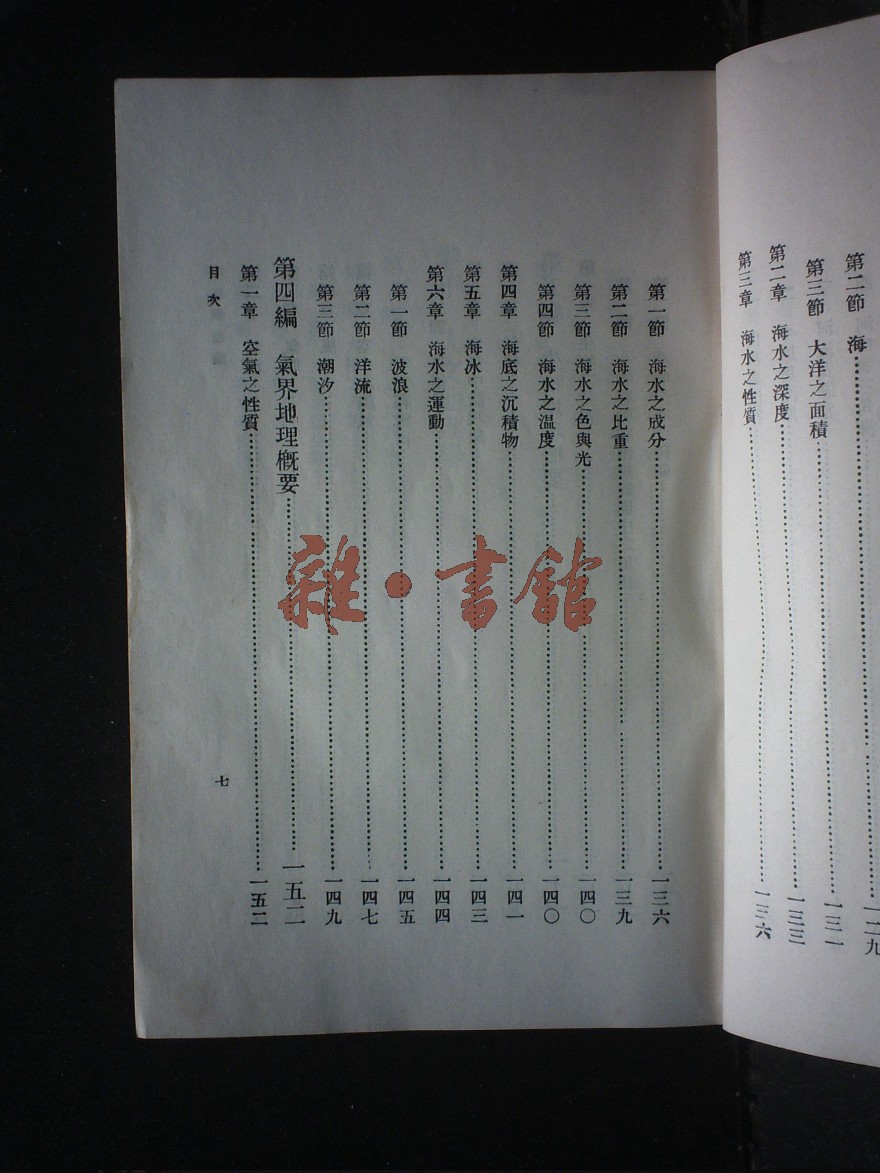 第二節 海 一二九
第三節 大洋之面積 一三一
第二章 海水之深度 一三三
第三章 海水之性質 一三六
第一節 海水之成分 一三六
第二節 海水之比重 一三九
第三節 海水之色與光 一四〇
第四節 海水之温度 一四〇
第四章 海底之沉積物 一四一
第五章 海冰 一四三
第六章 海水之運動 一四四
第一節 波浪 一四五
第二節 洋流 一四七
第三節 潮汐 一四九
第四編 氣界地理概要 一五二
第一章 空氣之性質 一五二
目次 七
雜·書館